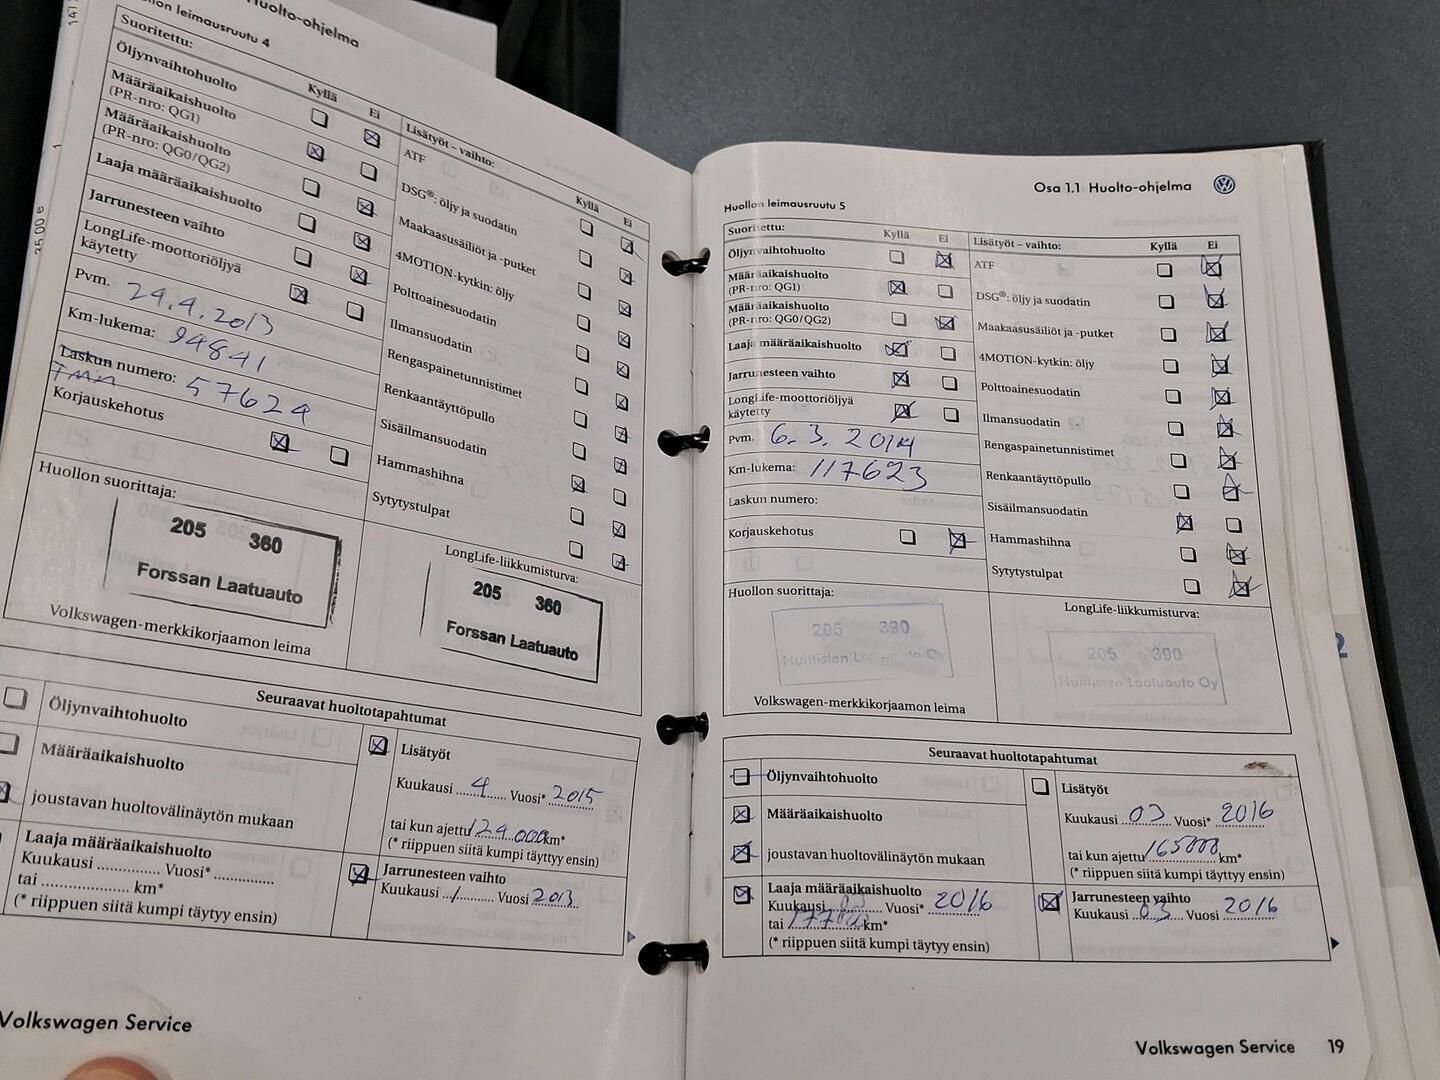 Huolto-ohjelma
leimausruutu 4
Suoritettu:
Kyllä Ei
Öljynvaihtohuolto
Määräaikaishuolto
(PR-nro: QG1)
Määräaikaishuolto
(PR-nro: QG0/QG2)
Laaja määräaikaishuolto
Jarrunesteen vaihto
LongLife-moottoriöljyä
käytetty
Pvm. 24.4.2013
Km-lukema: 94841
Laskun numero: 57624
Korjauskehotus
Lisätyöt – vaihto:
Kyllä Ei
ATF
DSG®: öljy ja suodatin
Maakaasusäiliöt ja -putket
4MOTION-kytkin: öljy
Polttoainesuodatin
Ilmansuodatin
Rengaspainetunnistimet
Renkaantäyttöpullo
Sisäilmansuodatin
Hammashihna
Sytytystulpat
Huollon suorittaja:
205 360
Forssan Laatuauto
Volkswagen-merkkikorjaamon leima
LongLife-liikkumisturva:
205 360
Forssan Laatuauto
Seuraavat huoltotapahtumat
Öljynvaihtohuolto
Määräaikaishuolto
joustavan huoltovälinäytön mukaan
Laaja määräaikaishuolto
Kuukausi .............. Vuosi* ..............
tai .................... km*
(* riippuen siitä kumpi täytyy ensin)
Lisätyöt
Kuukausi 4 Vuosi* 2015
tai kun ajettu 124.000 km*
(* riippuen siitä kumpi täyttyy ensin)
Jarrunesteen vaihto
Kuukausi 1 Vuosi 2013
Volkswagen Service
Osa 1.1 Huolto-ohjelma
Huollon leimausruutu 5
Suoritettu:
Kyllä Ei
Öljynvaihtohuolto
Määräaikaishuolto
(PR-nro: QG1)
Määräaikaishuolto
(PR-nro: QG0/QG2)
Laaja määräaikaishuolto
Jarrunesteen vaihto
LongLife-moottoriöljyä
käytetty
Pvm. 6.3.2014
Km-lukema: 117623
Laskun numero:
Korjauskehotus
Lisätyöt – vaihto:
Kyllä Ei
ATF
DSG®: öljy ja suodatin
Maakaasusäiliöt ja -putket
4MOTION-kytkin: öljy
Polttoainesuodatin
Ilmansuodatin
Rengaspainetunnistimet
Renkaantäyttöpullo
Sisäilmansuodatin
Hammashihna
Sytytystulpat
Huollon suorittaja:
205 390
Huittisten Oy
Volkswagen-merkkikorjaamon leima
LongLife-liikkumisturva:
205 390
Huittisten Laatuauto Oy
Seuraavat huoltotapahtumat
Öljynvaihtohuolto
Määräaikaishuolto
joustavan huoltovälinäytön mukaan
Laaja määräaikaishuolto
Kuukausi 03 Vuosi* 2016
tai km*
(* riippuen siitä kumpi täytyy ensin)
Lisätyöt
Kuukausi 03 Vuosi* 2016
tai kun ajettu 165000 km*
(* riippuen siitä kumpi täyttyy ensin)
Jarrunesteen vaihto
Kuukausi 03 Vuosi 2016
Volkswagen Service 19